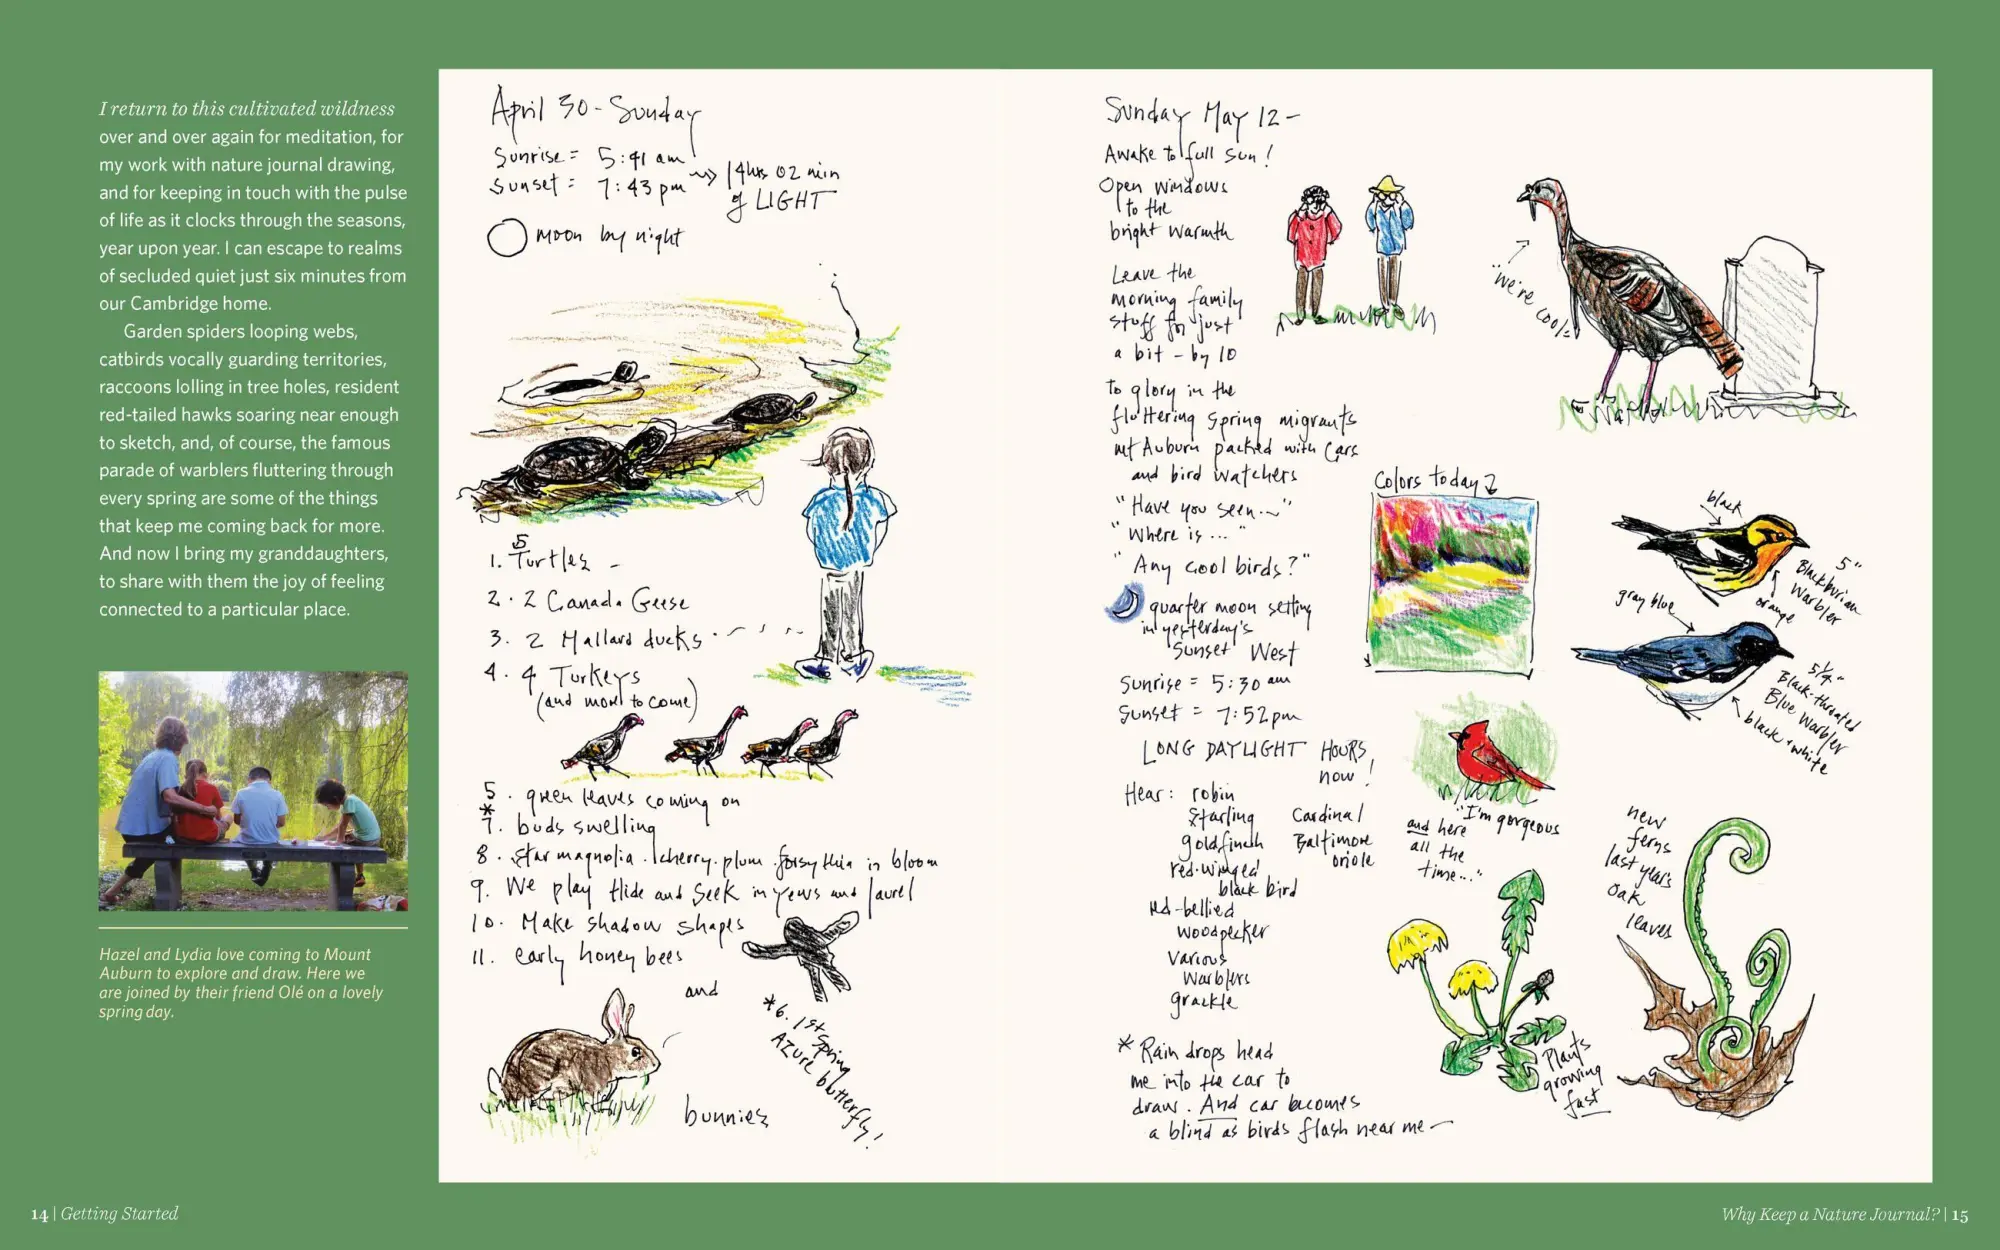 I return to this cultivated wildness
over and over again for meditation, for
my work with nature journal drawing,
and for keeping in touch with the pulse
of life as it clocks through the seasons,
year upon year. I can escape to realms
of secluded quiet just six minutes from
our Cambridge home.
Garden spiders looping webs,
catbirds vocally guarding territories,
raccoons lolling in tree holes, resident
red-tailed hawks soaring near enough
to sketch, and, of course, the famous
parade of warblers fluttering through
every spring are some of the things
that keep me coming back for more.
And now I bring my granddaughters,
to share with them the joy of feeling
connected to a particular place.
Hazel and Lydia love coming to Mount
Auburn to explore and draw. Here we
are joined by their friend Olé on a lovely
spring day.
14 | Getting Started
April 30 - Sunday
Sunrise = 5:41 am
Sunset = 7:43 pm
14 hrs 02 min
of LIGHT
moon by night
1. 5 Turtles -
2. 2 Canada Geese
3. 2 Mallard ducks
4. 4 Turkeys
(and more to come)
5. green leaves coming on
*
7. buds swelling
8. star magnolia. cherry. plum. forsythia in bloom
9. We play Hide and Seek in yews and laurel
10. Make shadow shapes
11. early honey bees
and
bunnies
*6. 1st Spring
Azure butterfly!
Sunday May 12 -
Awake to full sun!
Open windows
to the
bright warmth
Leave the
morning family
stuff for just
a bit - by 10
to glory in the
fluttering spring migrants
Mt Auburn packed with cars
and bird watchers
"Have you seen..."
"Where is ..."
"Any cool birds?"
quarter moon setting
in yesterday's
Sunset West
Sunrise = 5:30 am
Sunset = 7:52 pm
LONG DAYLIGHT HOURS
now!
Hear: robin
starling
goldfinch
red-winged
black bird
red-bellied
woodpecker
various
warblers
grackle
Cardinal
Baltimore
oriole
* Rain drops head
me into the car to
draw. And car becomes
a blind as birds flash near me -
"We're cool"
Colors today
black
5"
Blackburnian
Warbler
orange
gray blue
5 1/4"
Black-throated
Blue Warbler
black + white
"I'm gorgeous
and here
all the
time..."
new
ferns
last year's
oak
leaves
Plants
growing
fast
Why Keep a Nature Journal? | 15